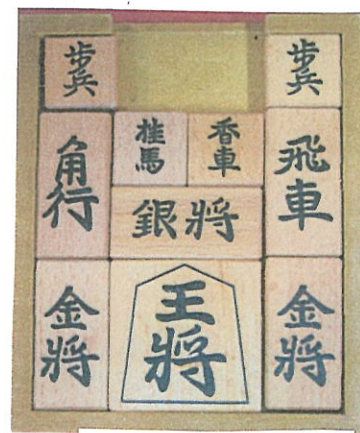 步兵
步兵
角行
桂馬
香車
飛車
銀將
金将
王将
金将